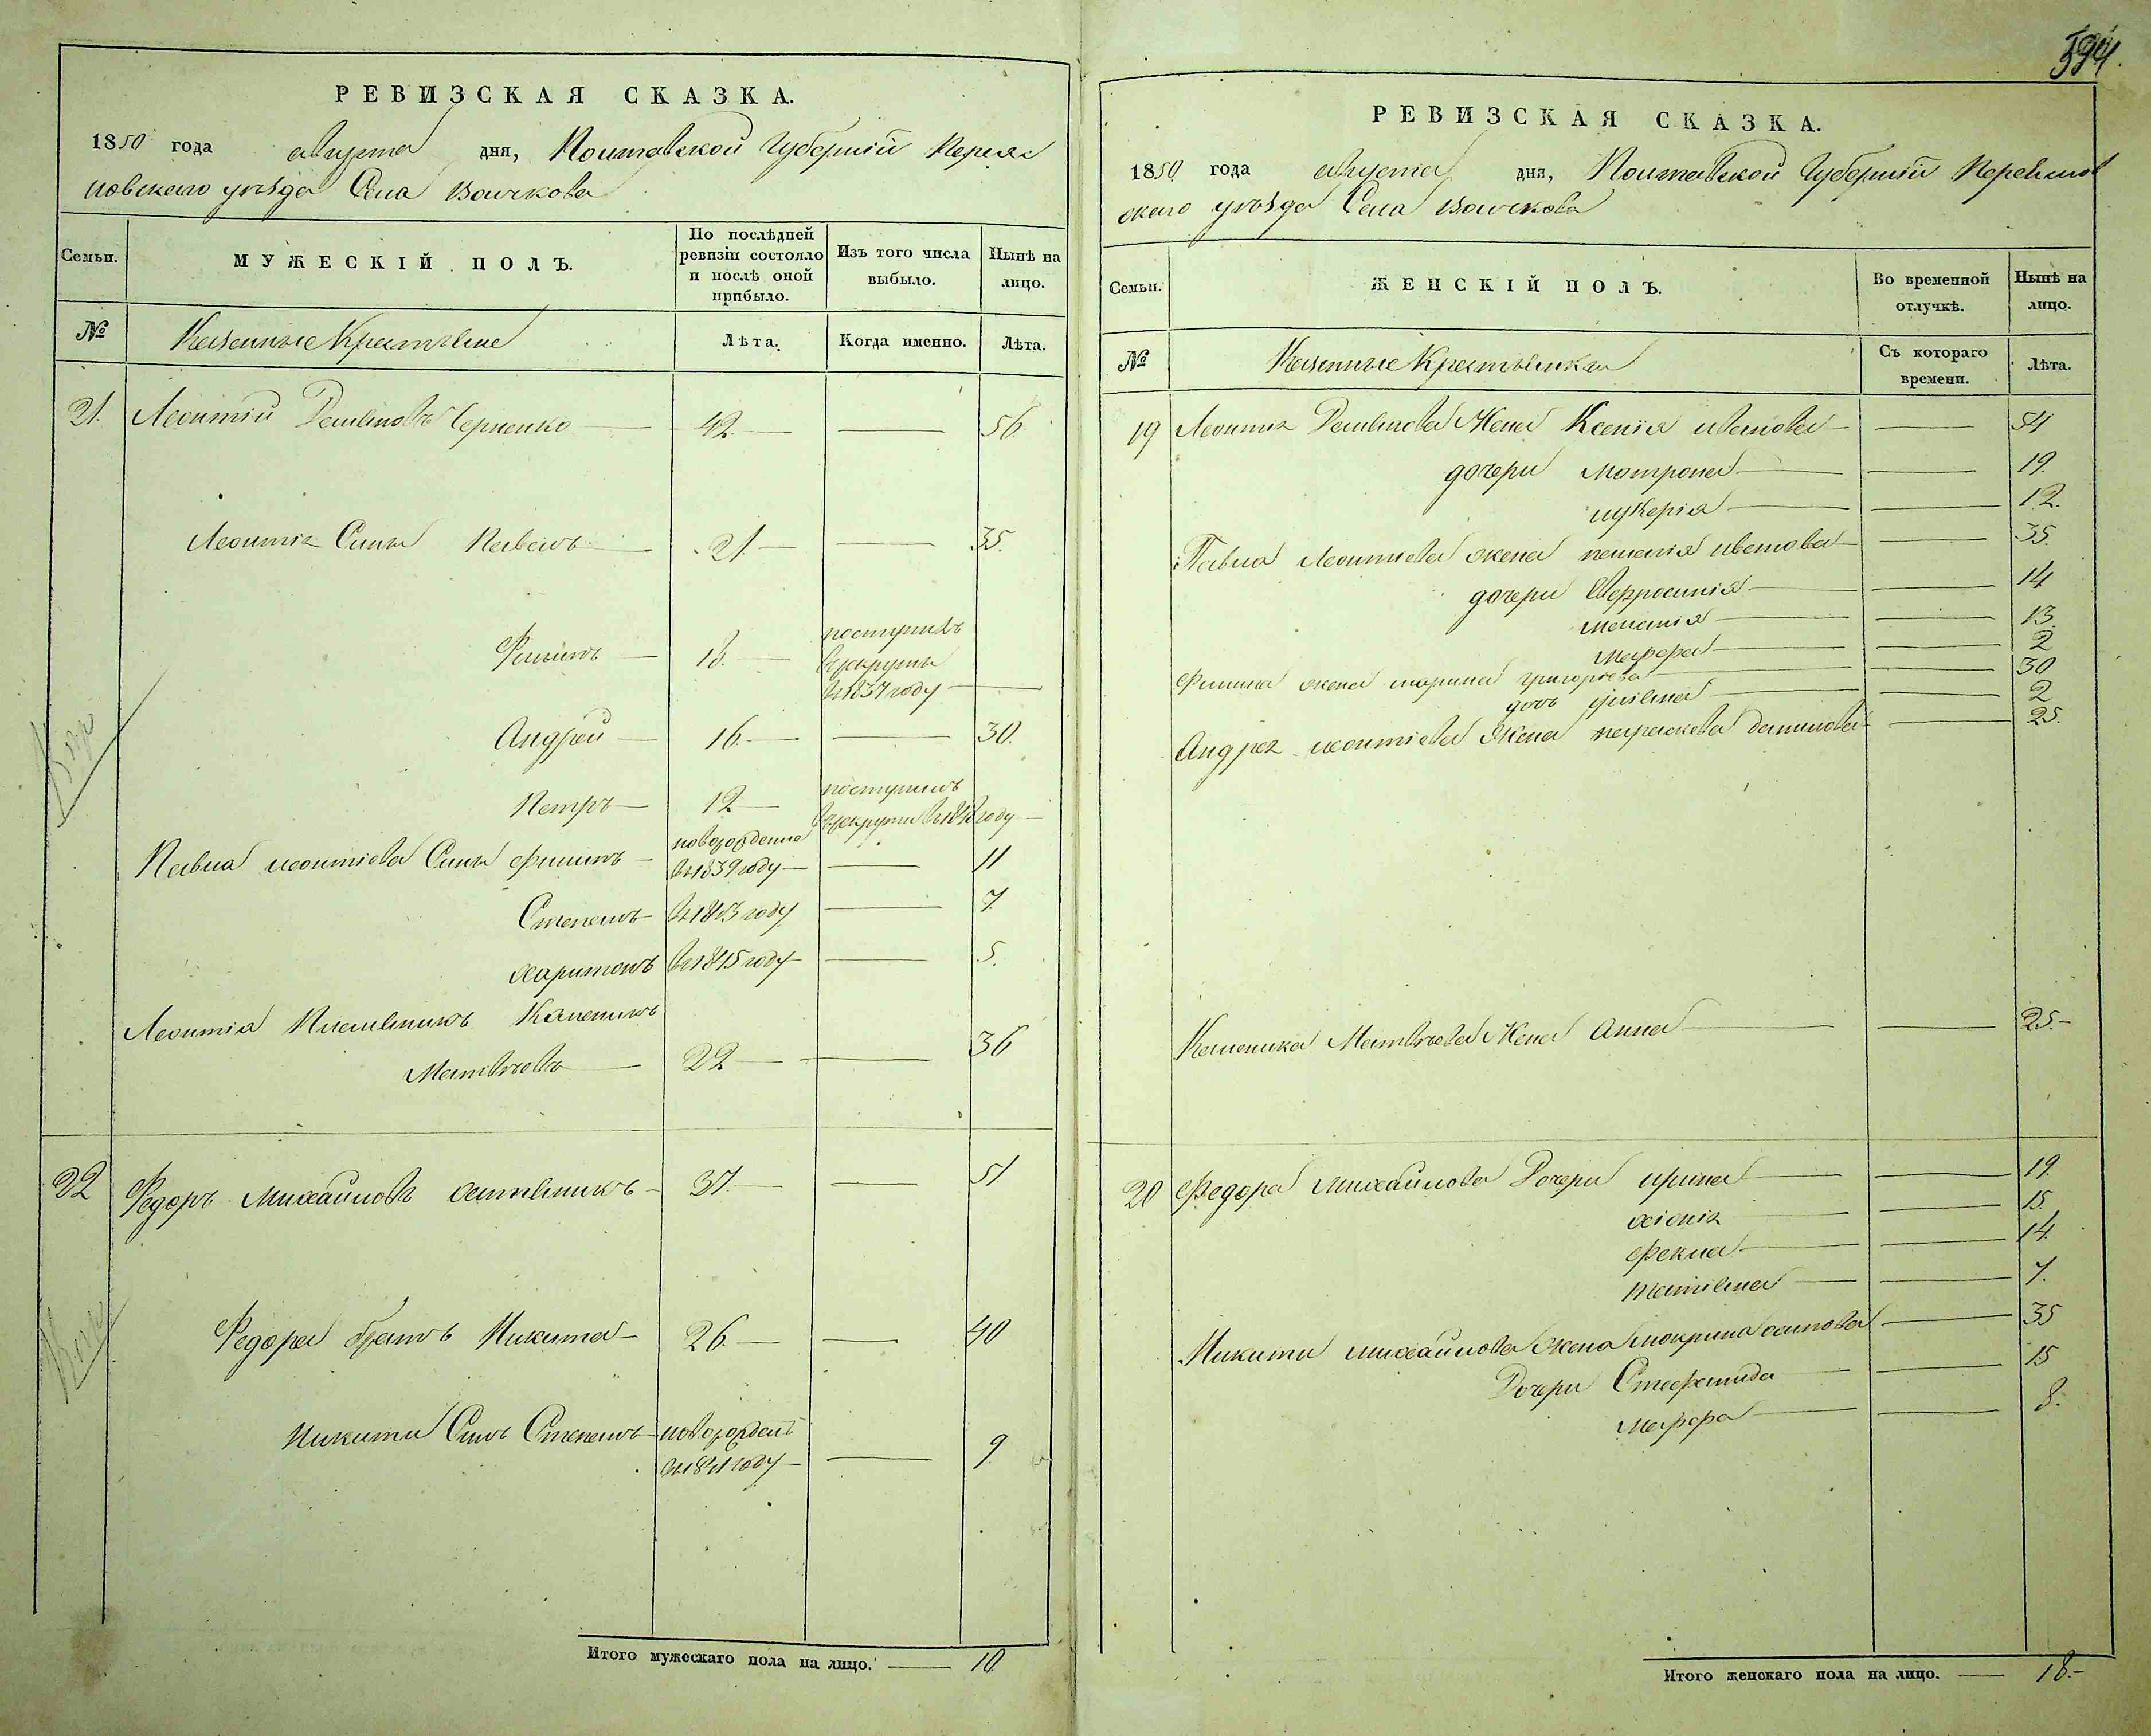 594.
РЕВИЗСКАЯ СКАЗКА.
1850 года августа дня, Полтавской Губернии Переяс
ловскаго уѣзда Села Волчкова
Семьи.
МУЖЕСКІЙ ПОЛЪ.
По послѣдней ревизіи состояло и послѣ оной прибыло.
Изъ того числа выбыло.
Нынѣ на лицо.
№
Казенные Крестьяне
Лѣта.
Когда именно.
Лѣта.
21. Леонтий Демяновъ Черненко — 42. — — 56.
Леонтія Сины Павелъ — 21. — — 35.
Филипъ — 18. — поступилъ
в рекруты
въ 1837 году —
Андрей — 16. — — 30.
Петръ — 12 — поступилъ
в рекруты въ 1848 году —
Павла леонтіева Сины филипъ — новорожденно
въ 1839 году — — 11
Степанъ въ 1843 году — 7.
харитонъ въ 1845 году — 5.
Леонтія Племянникъ Каленикъ
Матвѣевъ — 22 — — 36
22 Федоръ Михайловъ — 37. — — 51
Федора братъ Никита — 26. — — 40
Никити Синъ Степанъ — новорожденъ
въ 1841 году — — 9
Итого мужескаго пола на лицо. — 10.
РЕВИЗСКАЯ СКАЗКА.
1850 года августа дня, Полтавской Губерніи Переяслов
скаго уѣзда Села Волчкова
Семьи.
ЖЕНСКІЙ ПОЛЪ.
Во временной отлучкѣ.
Нынѣ на лицо.
№
Казенные Крестьянки
Съ котораго времени.
Лѣта.
19 Леонтія Демянова Жена Ксенія иванова — — 54
дочери Мотрона — — 19.
лукерія — — 12.
Павла Леонтіева жена пелагія иванова — — 35.
дочери Евфросинія — — 14
меланія — — 13.
Марфа — — 2
Филипа жена марина григорьева — — 30
дочь — — 2
Андрея леонтіева Жена параскева данилова — — 25.
Каленика Матвѣева Жена Анна — — 25. —
20 Федора михайлова Дочери ирина — — 19.
хіонія — — 15.
Фекла — — 14.
татіяна — — 7.
Никити михайлова жена мокрина осипова — — 35
Дочери Стефанида — — 15
марфа — — 8.
Итого женскаго пола на лицо. — 18. —